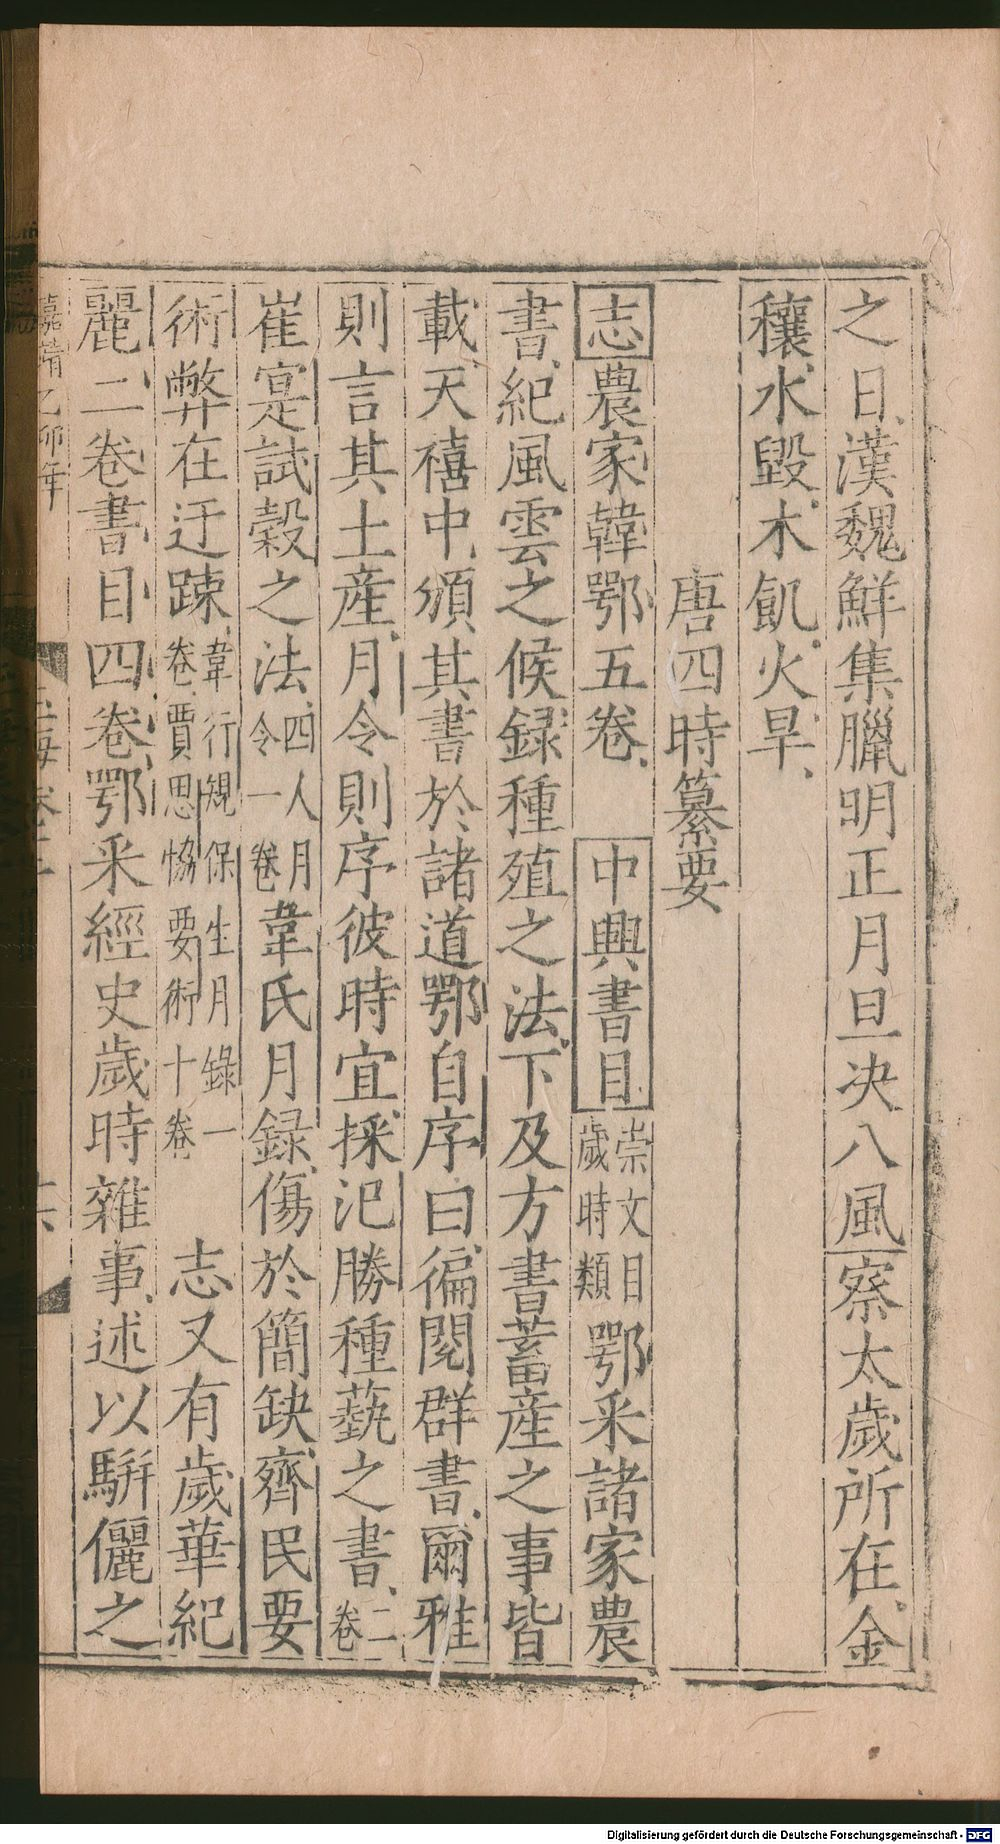 之日漢魏鮮集臘明正月旦决八風察太歲所在金
穰水毀木飢火旱
唐四時纂要
志農家韓鄂五卷　中興書目崇文目歲時類鄂采諸家農
書紀風雲之候録種殖之法下及方書蓄産之事皆
載天禧中頒其書於諸道鄂自序曰徧閱群書爾雅
則言其土産月令則序彼時宜採汜勝種藝之書二卷
崔寔試穀之法四人月令一卷韋氏月録傷於簡缺齊民要
術弊在迂踈韋行規保生月錄一卷賈思恊要術十卷　志又有歲華紀
麗二卷書目四卷鄂采經史歲時雜事述以駢儷之
嘉靖乙卯年
Digitalisierung gefördert durch die Deutsche Forschungsgemeinschaft - DFG